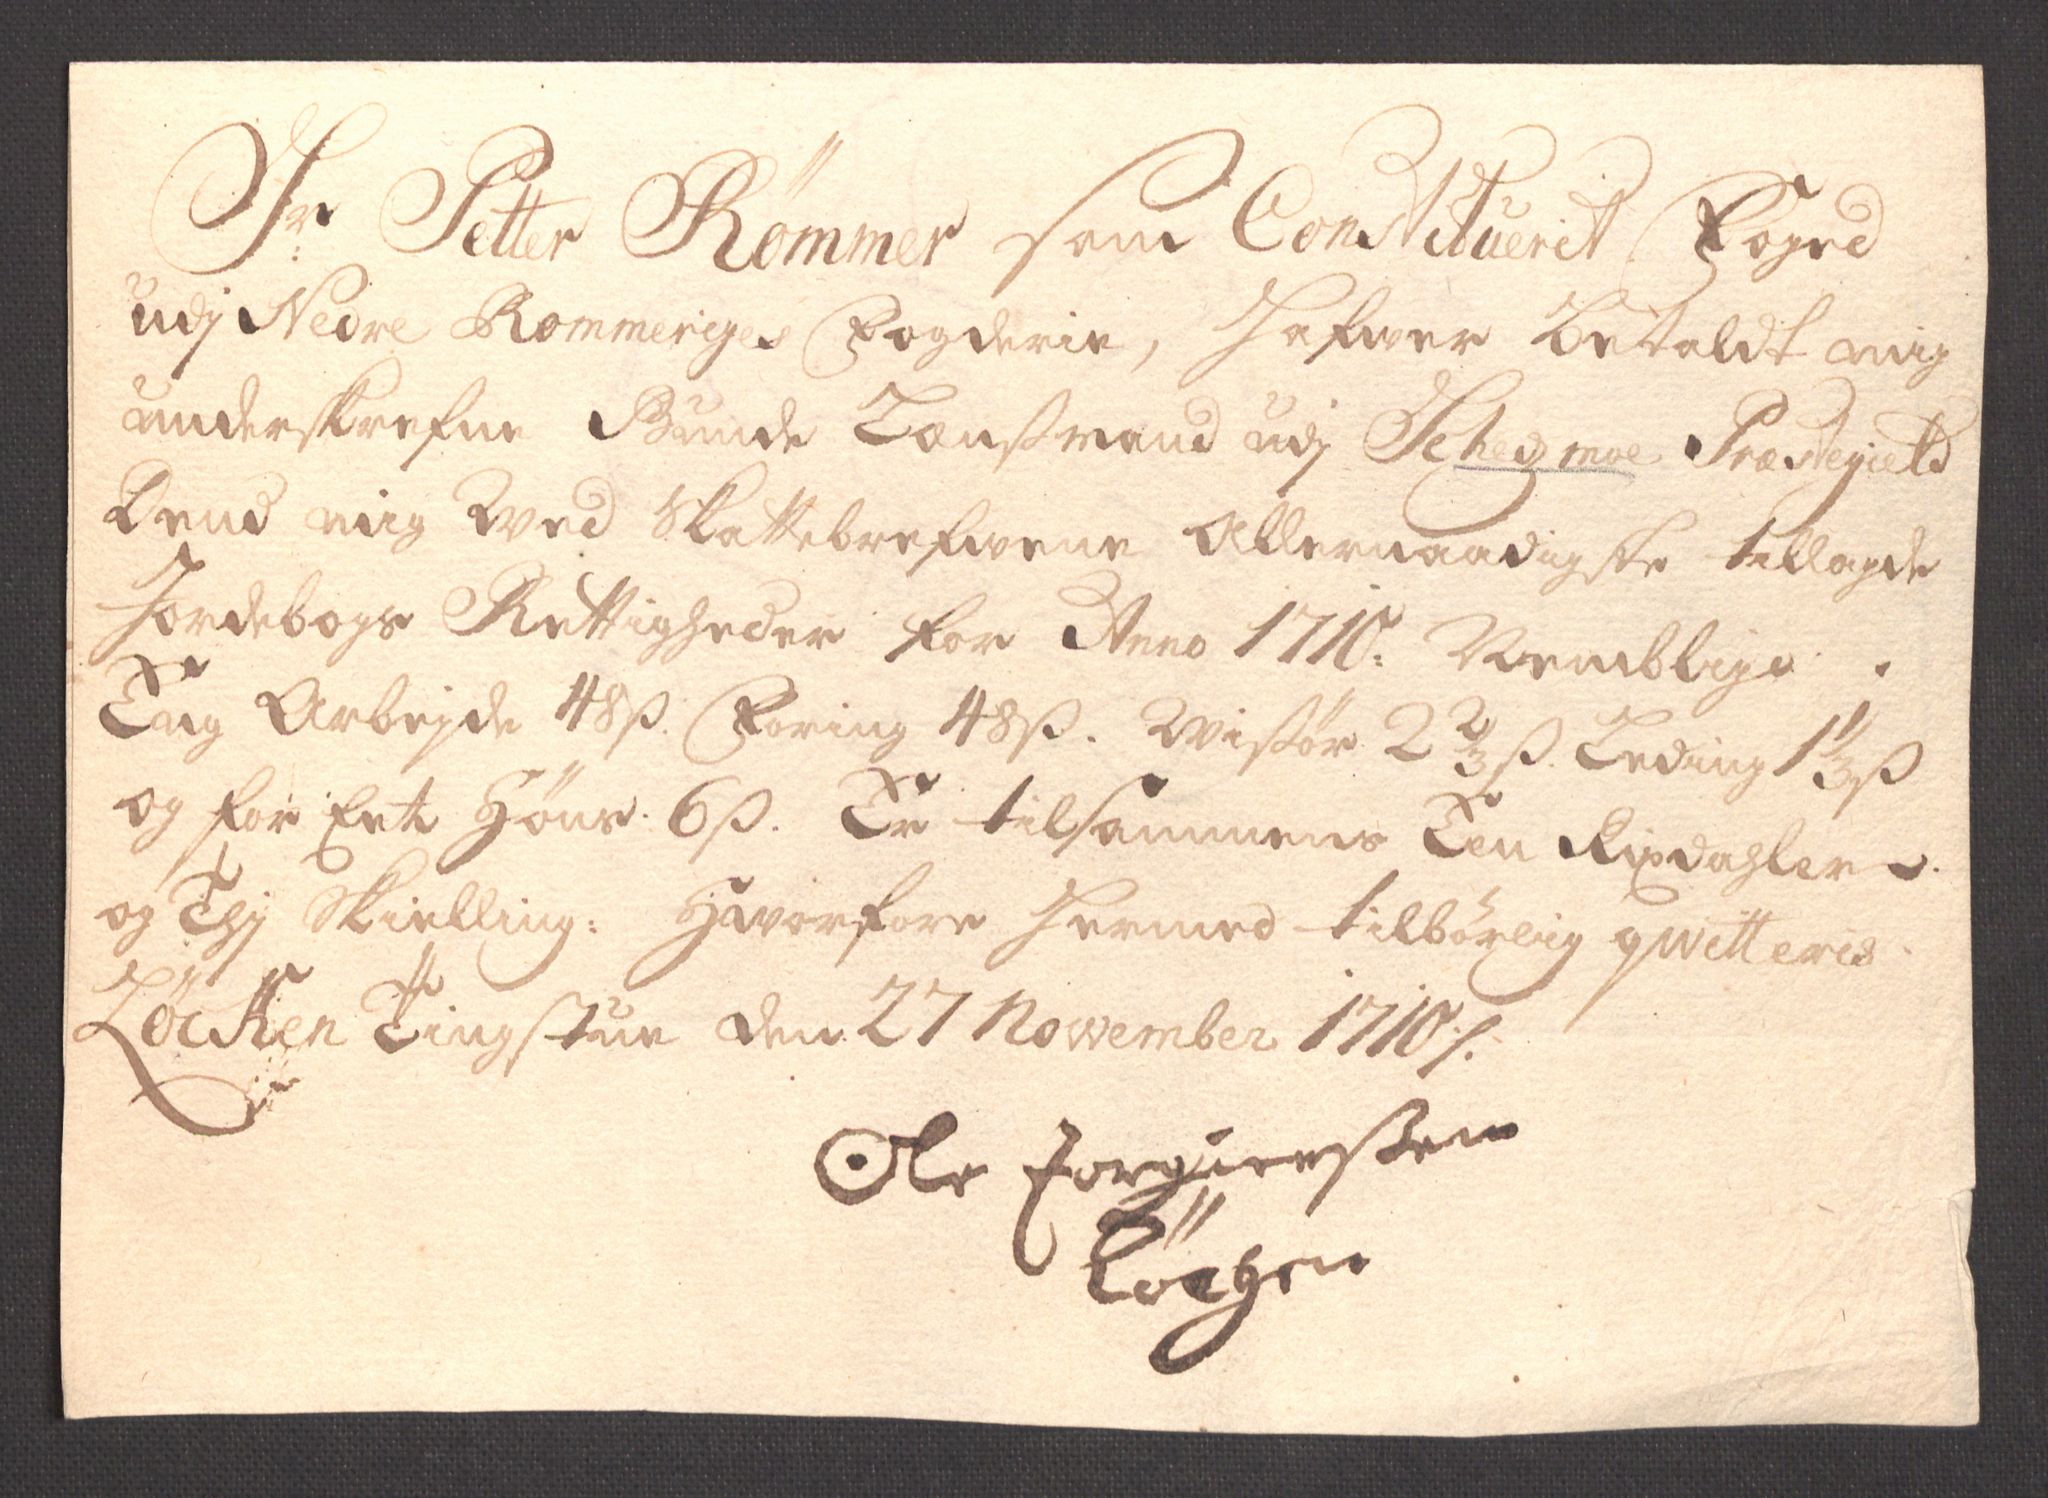 Sr: Petter Römmer som Constitueret Foged
udj Nedre Rommeriges Fogderie, Hafwer Betaldt mig
underskrefne Bunde Lensmand udj Schedzmoe Præstegield
Dend mig Wed Skattebrefwene Allernaadigste tillagde
Jordebogs Rettigheder for Anno 1710. Nemblige.
Eng Arbejde 48ß. Foring 48ß. Wisör 2 2/3 ß. Leding 1 1/3 ß
og for Eet Höns. 6ß. Er tilsammens Een Rixdahler
og Thj Skielling: Hworfore Hermed tilbörlig qwitteris.
Löcken Tingstue den 27 November 1710./.
Ole Jorgiensßen
Löchen